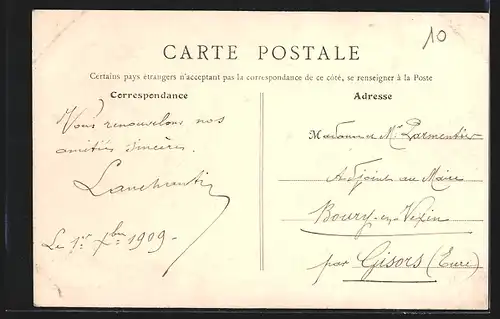 10
CARTE POSTALE
Certains pays étrangers n'acceptant pas la correspondance de ce côté, se renseigner à la Poste
Correspondance
Vous renouvelons nos
amitiés sincères.
Le 1er Xbre 1909-
Adresse
Madame et Mr Parmentier
Adjoint au Maire
Boury-en-Vexin
par Gisors (Eure)